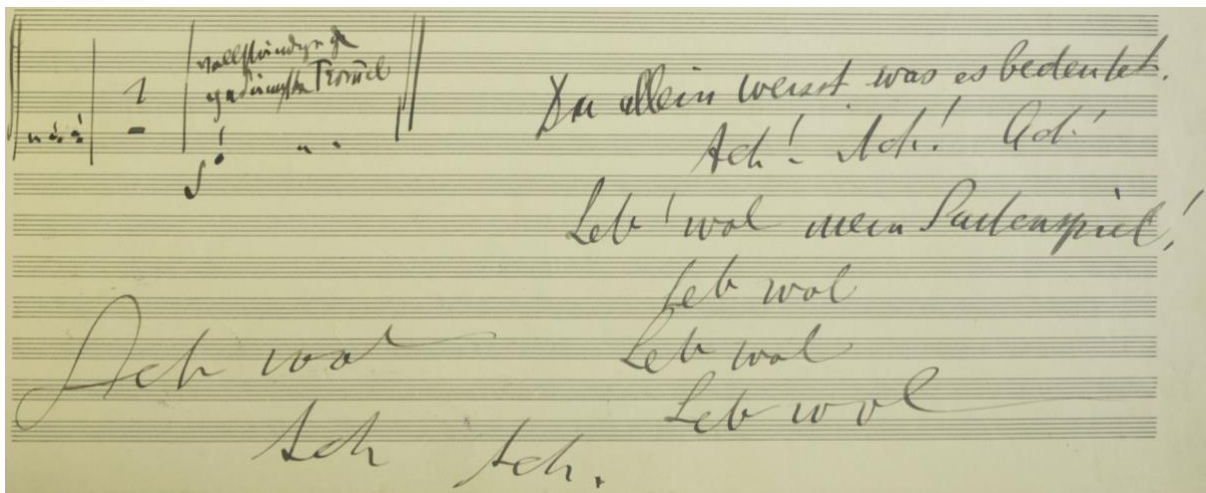 vollständig
gedämpfte Trommel
1
Du allein weisst was es bedeutet.
Ach! Ach! Ach!
Leb' wol mein Saitenspiel!
Leb wol
Leb wol
Leb wol
Ach wol
Ach Ach.